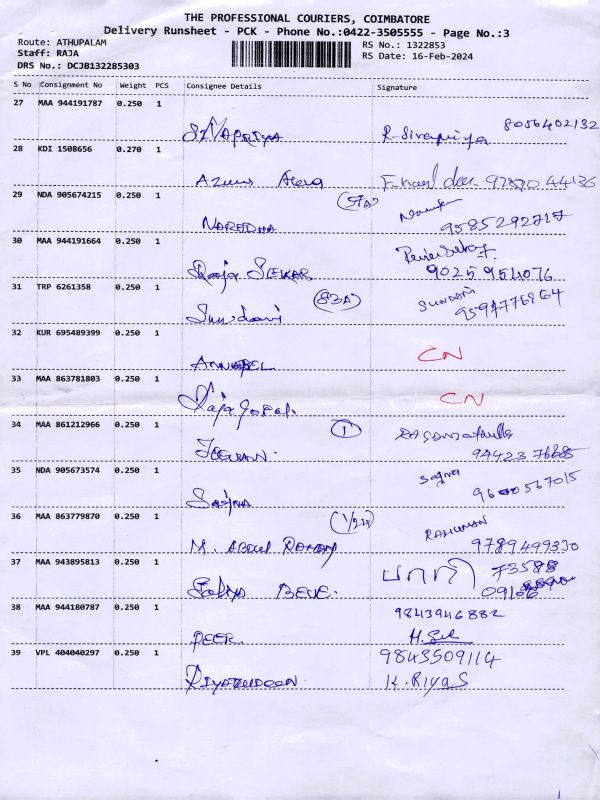 THE PROFESSIONAL COURIERS, COIMBATORE
Delivery Runsheet - PCK - Phone No.:0422-3505555 - Page No.:3
Route: ATHUPALAM
RS No.: 1322853
Staff: RAJA
RS Date: 16-Feb-2024
DRS No.: DCJB132285303
S No Consignment No Weight PCS Consignee Details Signature
27 MAA 944191787 0.250 1
8056402132
R-Sivapriya
28 KDI 1508656 0.270 1
97870 44136
29 NDA 905674215 0.250 1
(57A)
NAREDHA
9585292717
30 MAA 944191664 0.250 1
Raaja SEKAR
9025954076
31 TRP 6261358 0.250 1
(83A)
SUNDARI
Sundari
32 KUR 695489399 0.250 1
CN
33 MAA 863781803 0.250 1
CN
Raja Gopal.
34 MAA 861212966 0.250 1
1
35 NDA 905673574 0.250 1
36 MAA 863779870 0.250 1
RAHUMAN
M. ABDUL RAHMAN
9789499330
37 MAA 943895813 0.250 1
73588
38 MAA 944180787 0.250 1
9843946882
PEER
39 VPL 404040297 0.250 1
9843509114
RIYAZUDDEEN
K. RIYAS